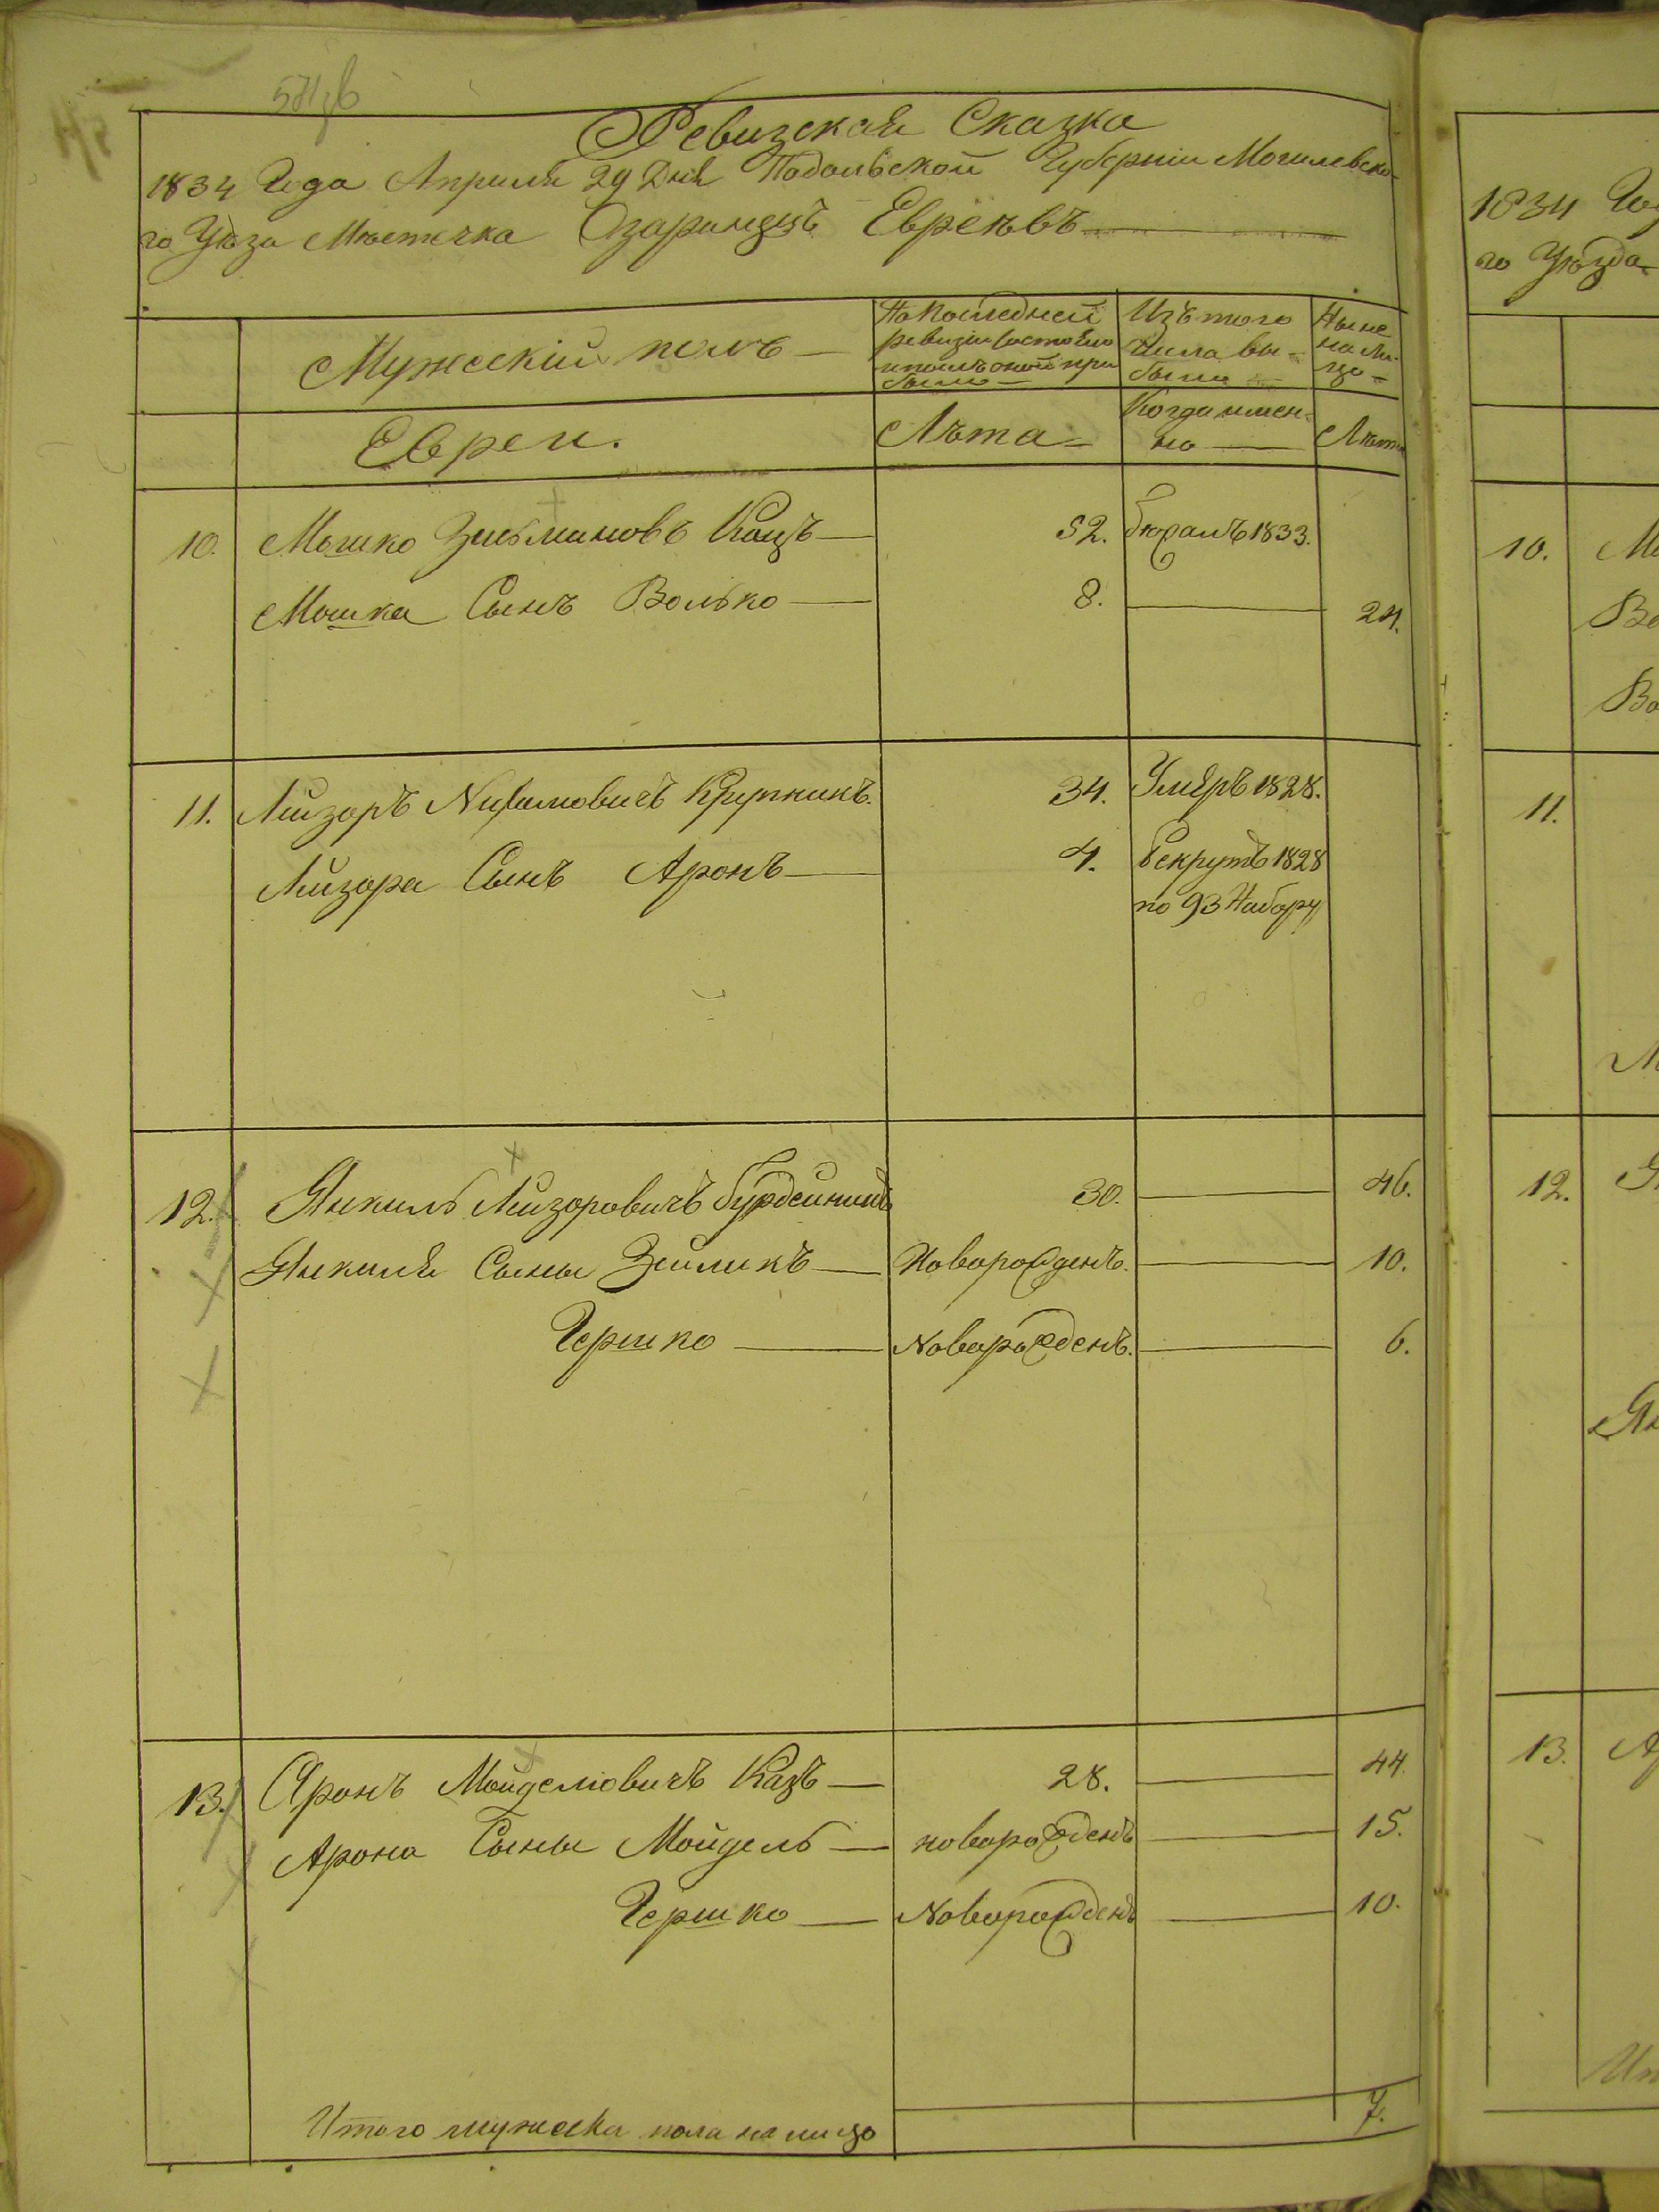 Ревизская Сказка
1834 Года Апреля 29 Дня Подольской Губернии Могилевско-
го Уѣзда Мѣстечка Озаринецъ Евреевъ
Мужескій полъ
По последней ревизіи состояло и после оной прибыло
Изъ того числа выбыло
Ныне на лицо
Евреи.
Лѣта
Когда имен-
но
Лѣта
10. Мошко Зильмановъ Кацъ 52. 1833.
Мошка Сынъ Волько 8. 24.
11. Лейзоръ Крупникъ. 34. Умеръ 1828.
Лейзора Сынъ Аронъ 4. Рекрутъ 1828
по 93 Набору
12. Янкиль Лейзоровичъ 30. 46.
Янкиля Сыны Зейликъ Новорожденъ. 10.
Гершко Новорожденъ. 6.
13. Аронъ Мойделювичъ Кацъ 28. 44.
Арона Сыны Мойдель новорожденъ 15.
Гершко Новорожденъ 10.
Итого мужеска пола на лицо 7.
1834
го Уѣзда
10.
11.
12.
13.